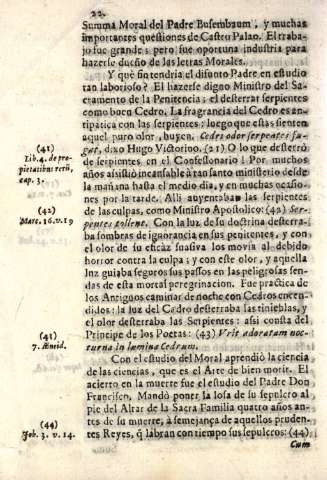 22.
Summa Moral del Padre Busembaum, y muchas
importantes questiones de Castro Palao. El traba-
jo fue grande; pero fue oportuna industria para
hazerse dueño de las letras Morales.
Y què fin tendria el difunto Padre en estudio
tan laborioso? El hazerse digno Ministro del Sa-
cramento de la Penitencia; el desterrar serpientes
como buen Cedro. La fragrancia del Cedro es an-
tipatica con las serpientes; luego que estas sienten
aquel puro olor, huyen. Cedro odor serpentes fu-
gat, dixo Hugo Victorino. (21) O lo que desterrò
de serpientes en el Confessionario! Por muchos
años assistiò incansable à tan santo ministerio desde
la mañana hasta el medio dia, y en muchas ocasio-
nes por la tarde. Alli auyentaba las serpientes
de las culpas, como Ministro Apostolico: (42) Ser-
pentes tollent. Con la luz de su doctrina desterra-
ba sombras de ignorancia en sus penitentes, y con
el olor de su eficaz suasiva los movia al debido
horror contra la culpa; y con este olor, y aquella
luz guiaba seguros sus passos en las peligrosas sen-
das de esta mortal peregrinacion. Fue practica de
los Antiguos caminar de noche con Cedros encen-
didos: la luz del Cedro desterraba las tinieblas, y
el olor desterraba las Serpientes: assi consta del
Principe de los Poetas: (43) Urit odoratam noc-
turna in lumina Cedrum.
Con el estudio del Moral aprendiò la ciencia
de las ciencias, que es el Arte de bien morir. El
acierto en la muerte fue el estudio del Padre Don
Francisco. Mandò poner la losa de su sepulcro al
pie del Altar de la Sacra Familia quatro años an-
tes de su muerte, à semejança de aquellos pruden-
tes Reyes, q̃ labran con tiempo sus sepulcros: (44)
Cum
(41)
Lib. 4. de pro-
prietatibus rerũ,
cap. 3.
(42)
Marc. 16. v. 19
(41)
7. Æneid.
(44)
Job. 3. v. 14.